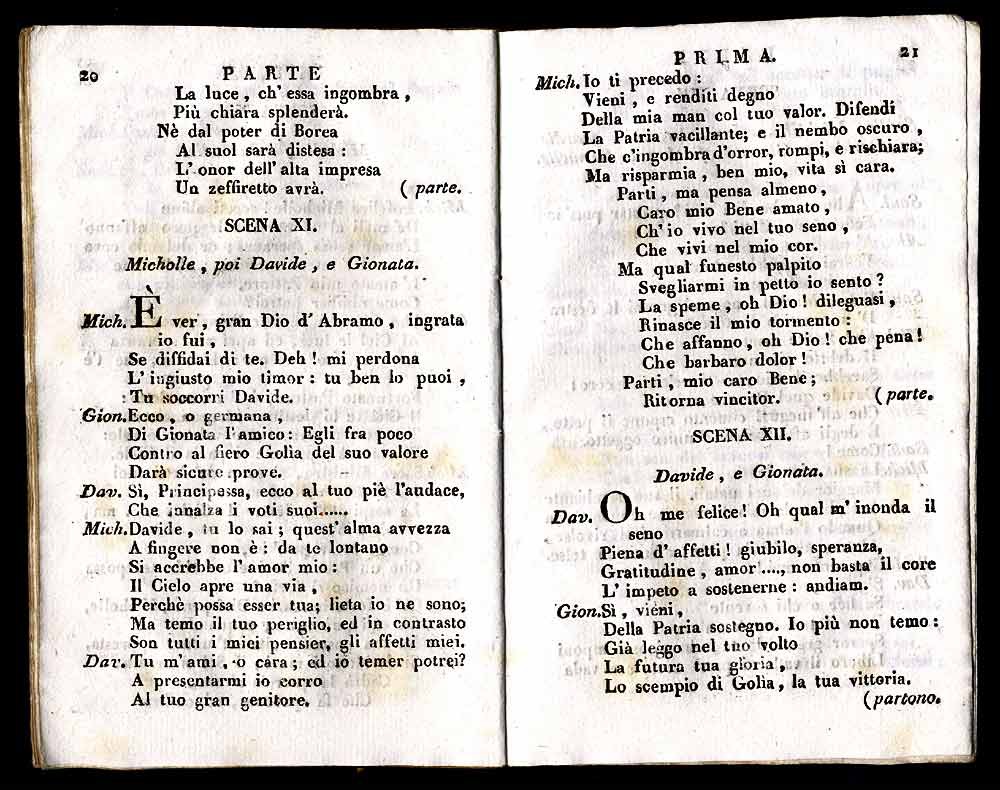 20 PARTE
La luce, ch' essa ingombra,
Più chiara splenderà.
Nè dal poter di Borea
Al suol sarà distesa :
L' onor dell' alta impresa
Un zeffiretto avrà. ( parte.
SCENA XI.
Micholle, poi Davide, e Gionata.
Mich. È ver, gran Dio d' Abramo, ingrata
io fui,
Se diffidai di te. Deh ! mi perdona
L' ingiusto mio timor : tu ben lo puoi,
Tu soccorri Davide.
Gion. Ecco, o germana,
Di Gionata l'amico : Egli fra poco
Contro al fiero Golìa del suo valore
Darà sicure prove.
Dav. Sì, Principessa, ecco al tuo piè l'audace,
Che innalza i voti suoi......
Mich. Davide, tu lo sai ; quest' alma avvezza
A fingere non è : da te lontano
Si accrebbe l' amor mio :
Il Cielo apre una via,
Perchè possa esser tua; lieta io ne sono;
Ma temo il tuo periglio, ed in contrasto
Son tutti i miei pensier, gli affetti miei.
Dav. Tu m' ami, o cara ; ed io temer potrei?
A presentarmi io corro
Al tuo gran genitore.
PRIMA. 21
Mich. Io ti precedo :
Vieni, e renditi degno
Della mia man col tuo valor. Difendi
La Patria vacillante; e il nembo oscuro,
Che c'ingombra d'orror, rompi, e rischiara;
Ma risparmia, ben mio, vita sì cara.
Parti, ma pensa almeno,
Caro mio Bene amato,
Ch' io vivo nel tuo seno,
Che vivi nel mio cor.
Ma qual funesto palpito
Svegliarmi in petto io sento ?
La speme, oh Dio ! dileguasi,
Rinasce il mio tormento :
Che affanno, oh Dio ! che pena!
Che barbaro dolor !
Parti, mio caro Bene ;
Ritorna vincitor. ( parte.
SCENA XII.
Davide, e Gionata.
Dav. Oh me felice ! Oh qual m' inonda il
seno
Piena d' affetti ! giubilo, speranza,
Gratitudine, amor...., non basta il core
L' impeto a sostenerne : andiam.
Gion. Sì, vieni,
Della Patria sostegno. Io più non temo :
Già leggo nel tuo volto
La futura tua gloria,
Lo scempio di Golìa, la tua vittoria.
(partono.